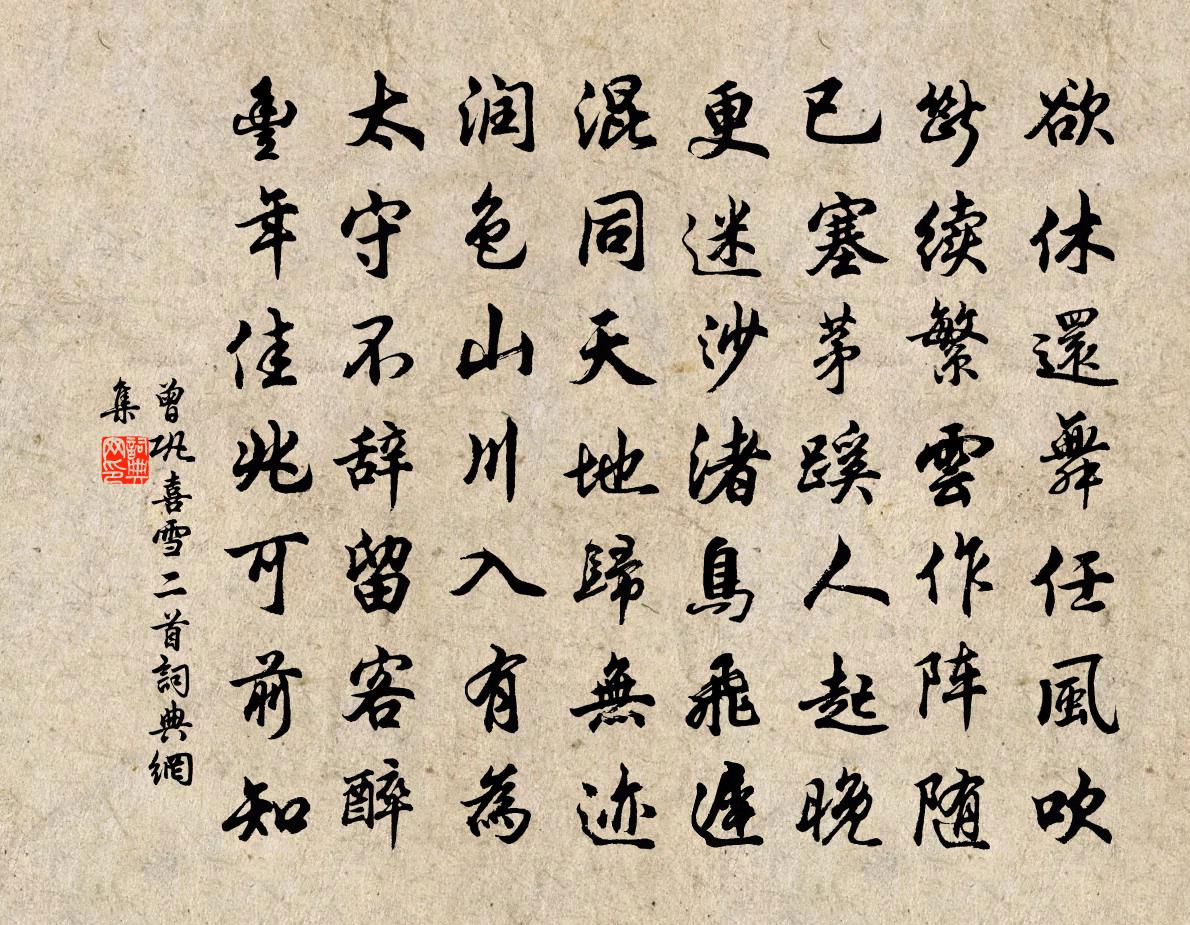 欲休還舞任風吹
斷续繁雲作阵随
已塞茅蹊人起晚
更迷沙渚鳥飛遲
混同天地歸無迹
润色山川入有為
太守不辞留客醉
豐年佳兆可前知
曾巩喜雪二首詞典網
集
詞典
网印